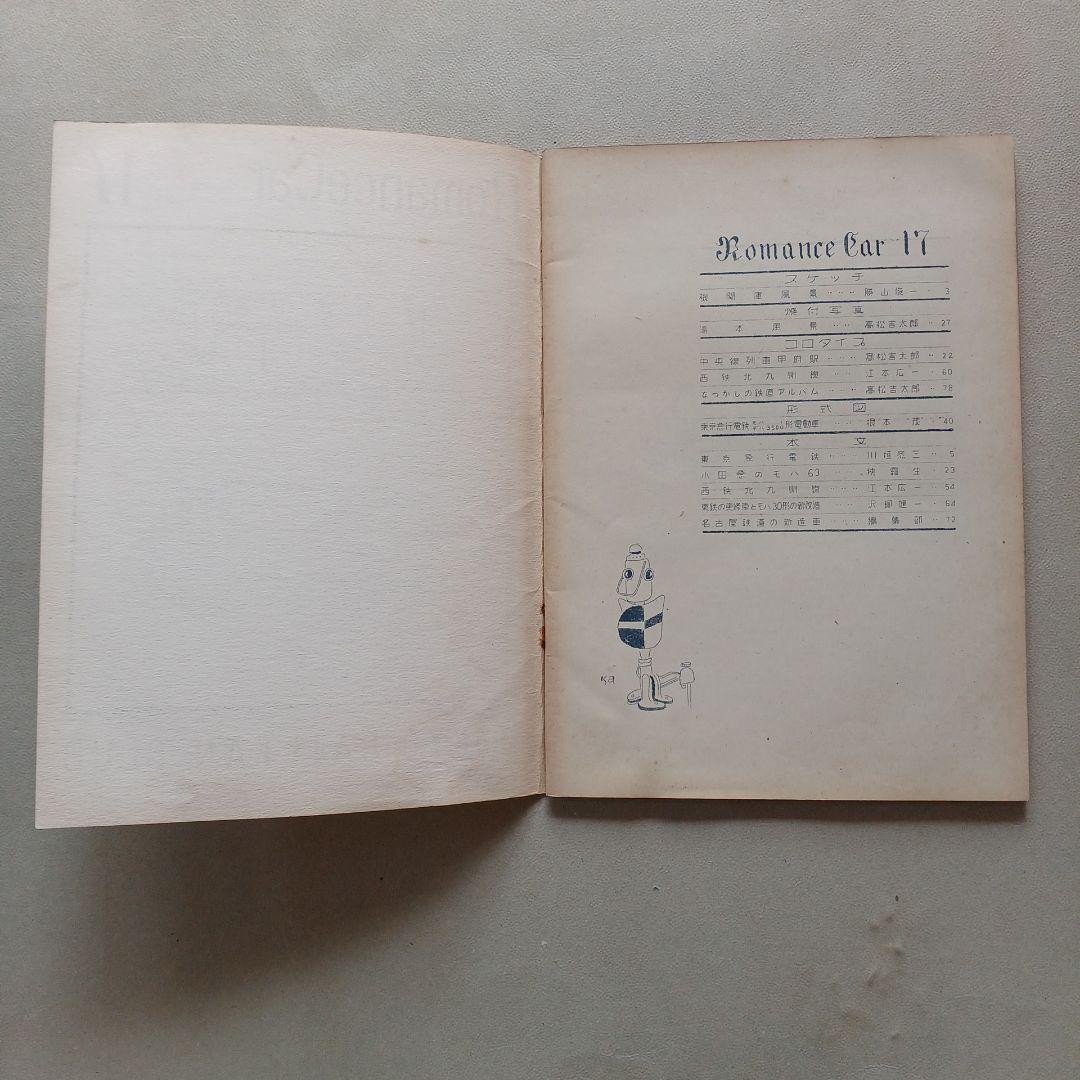 RomanceCar 17
Romance Car 17
スケッチ
機関庫風景 ‥‥ 勝山俊一 ‥ 3
焼付写真
湯本風景 ‥‥ 高松吉太郎 ‥ 27
コロタイプ
中央線列車甲府駅 ‥‥ 高松吉太郎 ‥ 22
西鉄北九州線 ‥‥ 江本広一 ‥ 60
なつかしの鉄道アルバム ‥‥ 高松吉太郎 ‥ 78
形式図
東京急行電鉄 3500形電動車 ‥‥ 根本茂 ‥ 40
本文
東京急行電鉄 ‥‥ 川垣恭三 ‥ 5
小田急のモハ63 ‥‥ 生 ‥ 23
西鉄北九州線 ‥‥ 江本広一 ‥ 54
東鉄の更終車とモハ30形の新改造 ‥‥ 沢柳健一 ‥ 68
名古屋鉄道の新造車 ‥‥ 編集部 ‥ 72
Ka